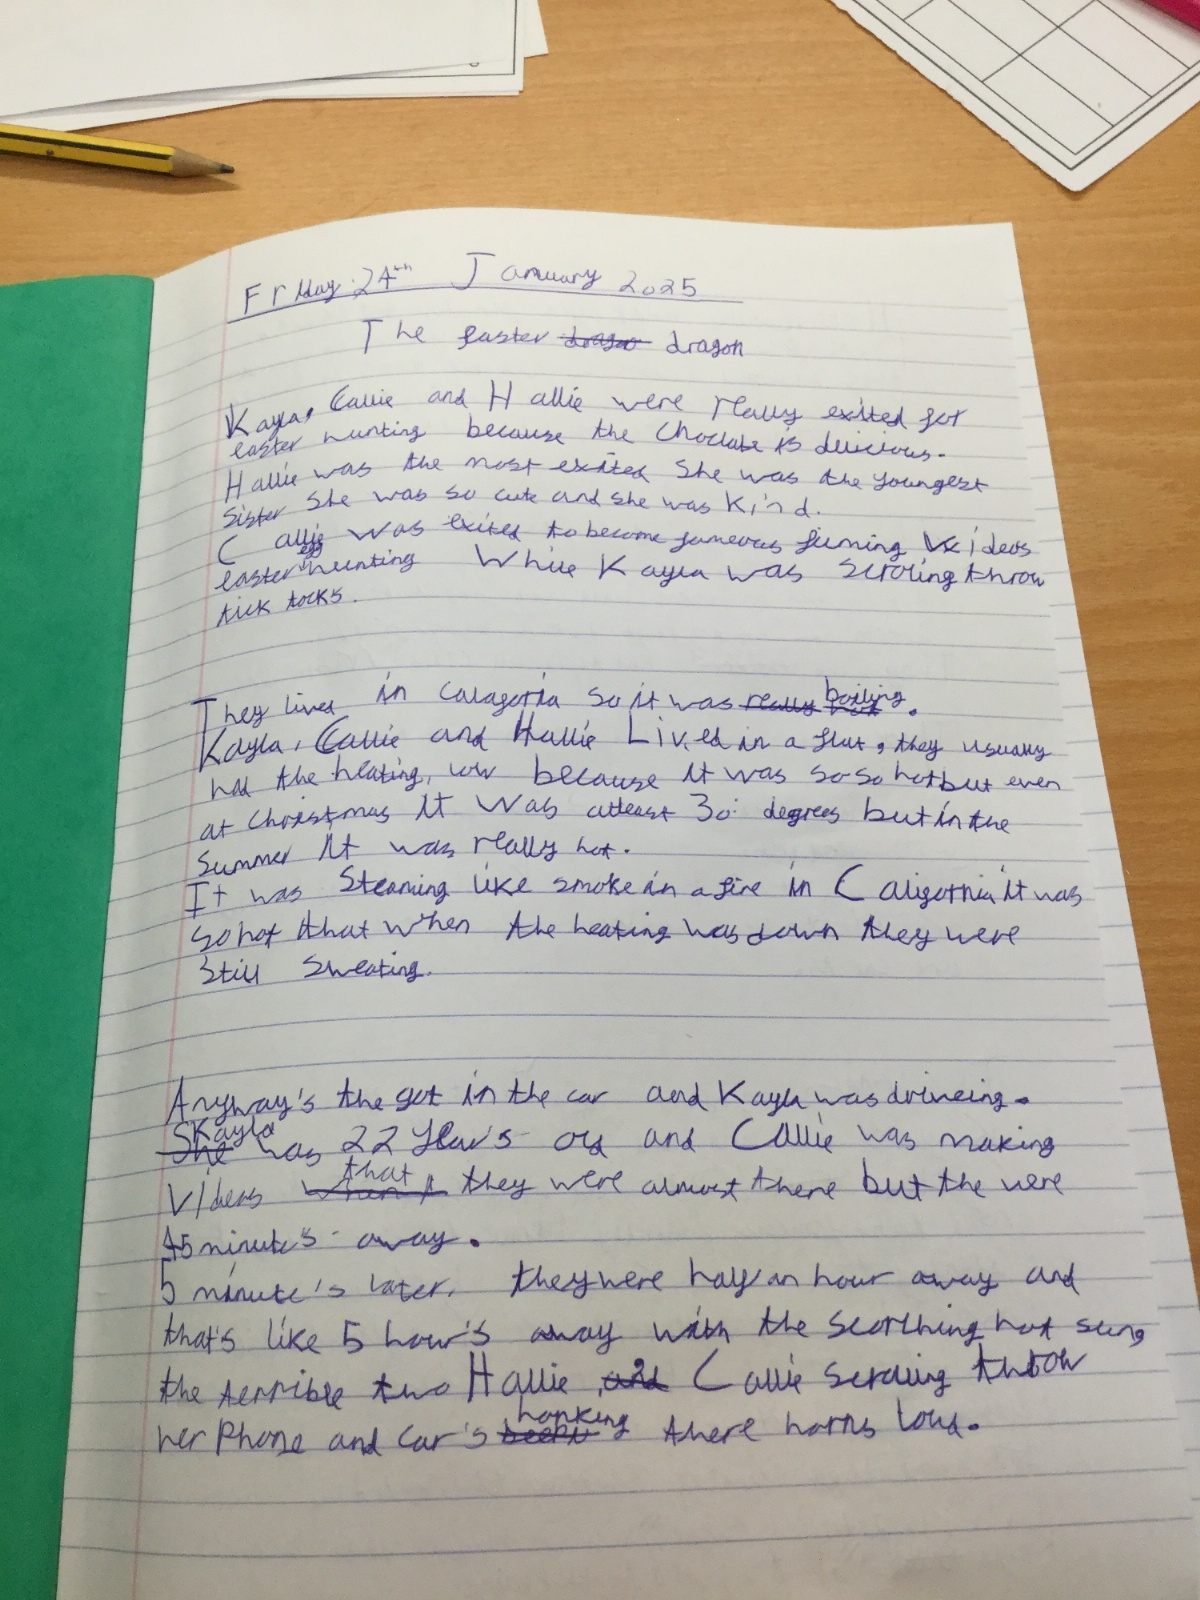 Friday 24th January 2025
The easter dragon
Kayla, Callie and Hallie were really exited for
easter hunting because the Choclate is delicious.
Hallie was the most exited She was the youngest
sister She was so cute and she was kind.
Callie was exited to become fameous fiming Videos
easter egg hunting While Kayla was scroling throw
tick tocks.
They lived in Calagoria so it was boiling.
Kayla, Callie and Hallie Lived in a flat, they usually
had the heating, low because it was so so hot but even
at Christmas it was atleast 30° degrees but in the
summer it was really hot.
It was Steaming like smoke in a fire in Caligornia it was
so hot that when the heating was down they were
still sweating.
Anyway's the got in the car and Kayla was driveing.
Kayla was 22 years old and Callie was making
Videos that they were almost there but the were
45 minute's away.
5 minute's later, they were half an hour away and
that's like 5 hour's away with the scorching hot sung
the terrible two Hallie, Callie scroling throw
her Phone and car's honking there horns loud.